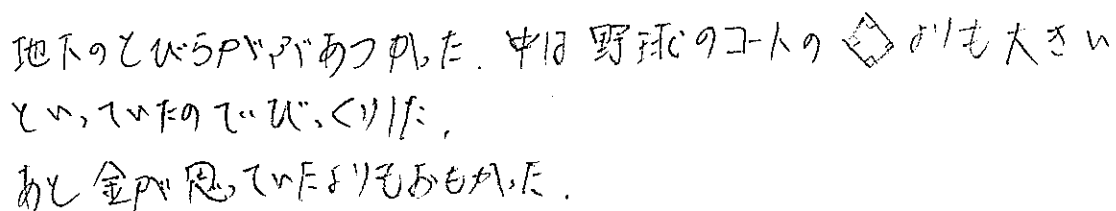 地下のとびらががあつかった。中は野球のコートの◇よりも大きい
といっていたのでびっくりした。
あと金が思っていたよりもおもかった。